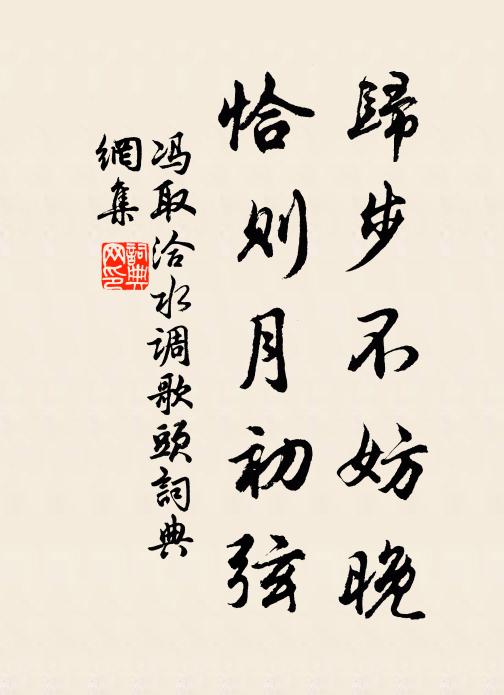 歸步不妨晚
恰則月初弦
冯取洽水调歌頭詞典
網集
詞典
网印